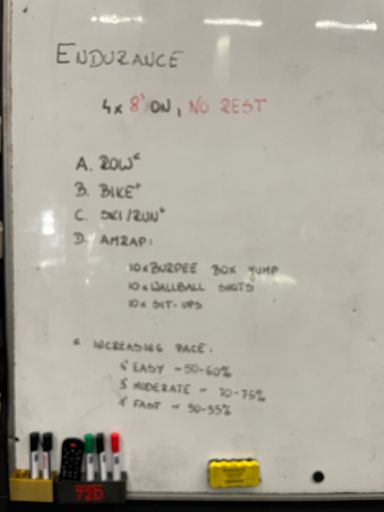 ENDURANCE
4x 8' ON, NO REST
A. ROW*
B. BIKE*
C. SKI/RUN*
D. AMRAP:
10x BURPEE BOX JUMP
10x WALLBALL SHOTS
10x SIT-UPS
* INCREASING PACE:
4' EASY ~50-60%
3' MODERATE ~ 70-75%
1' FAST ~
72D